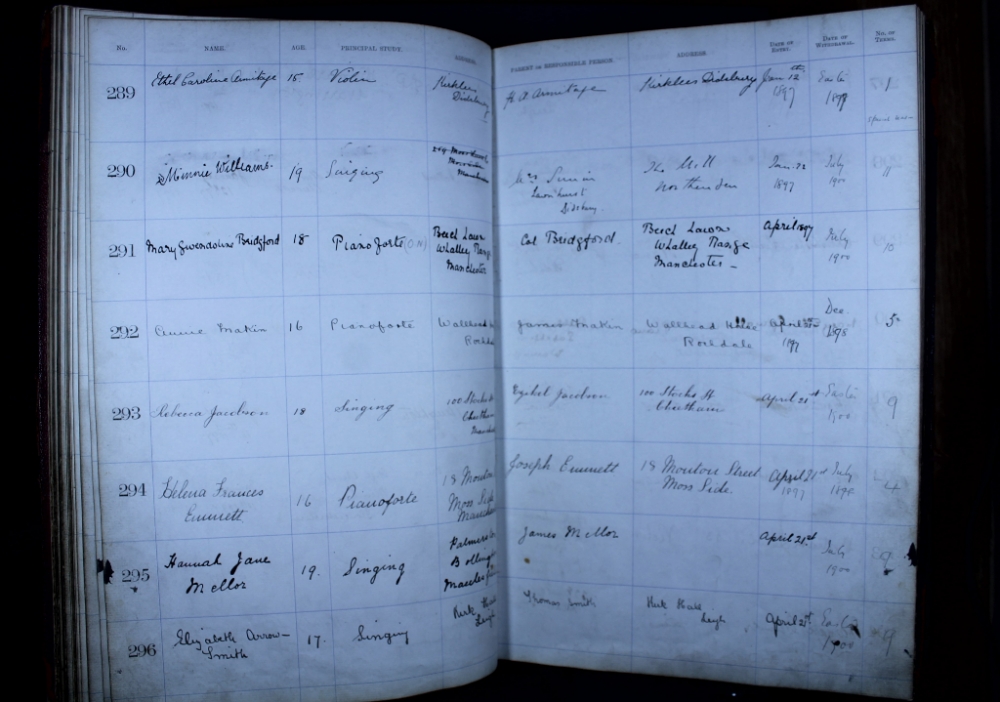 No. NAME. AGE. PRINCIPAL STUDY. ADDRESS. PARENT OR RESPONSIBLE PERSON. ADDRESS. DATE OF ENTRY. DATE OF WITHDRAWAL. No. OF TERMS.
289 Ethel Caroline Armitage 15 Violin Kirklees Didsbury H A Armitage Kirklees Didsbury Jan 12th 1897 Easter 1
290 Minnie Williams. 19 Singing
Didsbury Jan. 1897 July 1900 11
291 Mary Gwendoline Bridgford 18 Pianoforte Beech Lawn Whalley Range Manchester Col Bridgford. Beech Lawn Whalley Range Manchester – April 1897 July 1900 10
292 Annie Makin 16 Pianoforte Wallhead Rochdale James Makin Wallhead Rochdale April 1897 Dec 1898 5
293 Rebecca Jacobson 18 Singing 100 Stocks St Cheetham Jacobson 100 Stocks St Cheetham April 21st Easter 1900 9
294 Helena Frances Emmett 16 Pianoforte 18 Moulton Moss Side Joseph Emmett 18 Moulton Street Moss Side April 21st 1897 July 4
295 Hannah Jane Mellor 19. Singing Bollington James Mellor April 21st July 1900
296 Elizabeth Arrow-Smith 17. Singing Leigh Thomas Smith Hall Leigh April 21st Easter 1900 9